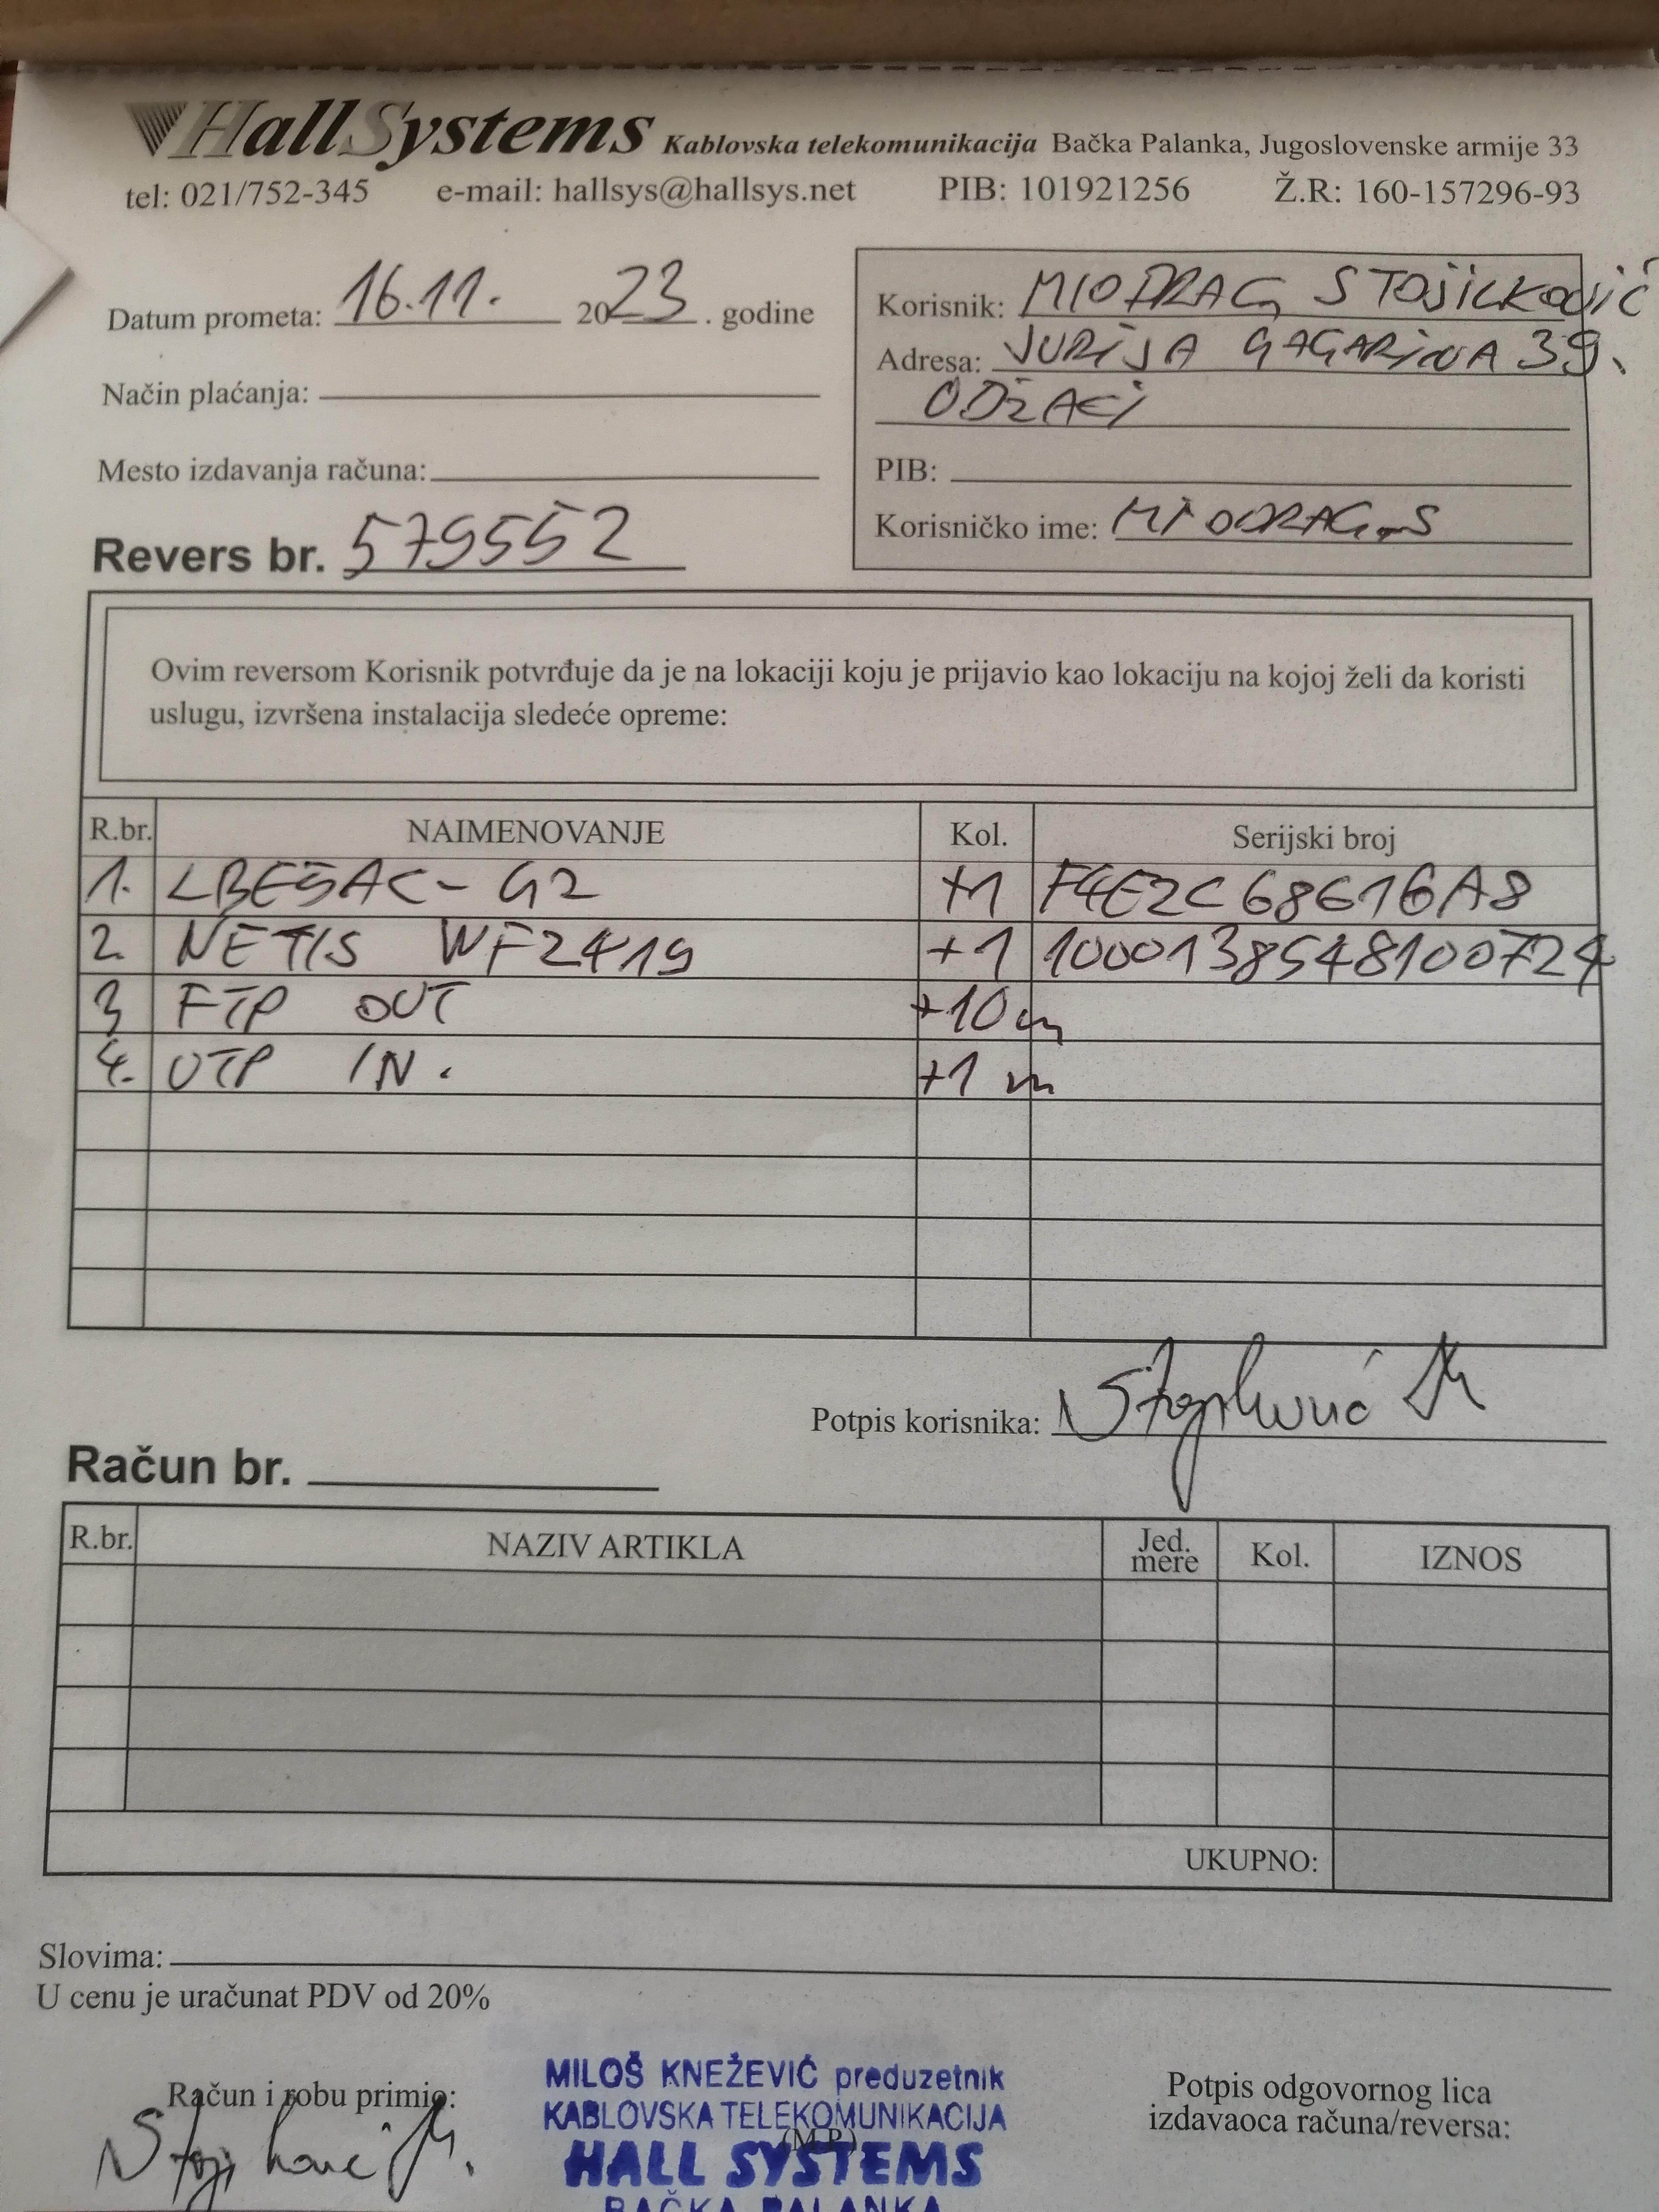 HallSystems Kablovska telekomunikacija Bačka Palanka, Jugoslovenske armije 33
tel: 021/752-345 e-mail: hallsys@hallsys.net PIB: 101921256 Ž.R: 160-157296-93
Datum prometa: 16.11. 2023. godine
Način plaćanja:
Mesto izdavanja računa:
Revers br. 579552
Korisnik: MIODRAG STOJILKOVIĆ
Adresa: JURIJA GAGARINA 39.
ODŽACI
PIB:
Korisničko ime: MIODRAG_S
Ovim reversom Korisnik potvrđuje da je na lokaciji koju je prijavio kao lokaciju na kojoj želi da koristi
uslugu, izvršena instalacija sledeće opreme:
R.br. NAIMENOVANJE Kol. Serijski broj
1. LBE5AC-G2 +1 F4E2C68616A8
2. NETIS WF2419 +1 1000138548100724
3 FTP OUT +10m
4. UTP IN. +1 m
Potpis korisnika:
Račun br.
R.br. NAZIV ARTIKLA Jed. mere Kol. IZNOS
UKUPNO:
Slovima:
U cenu je uračunat PDV od 20%
Račun i robu primio:
MILOŠ KNEŽEVIĆ preduzetnik
KABLOVSKA TELEKOMUNIKACIJA
(M.P.)
HALL SYSTEMS
BAČKA PALANKA
Potpis odgovornog lica
izdavaoca računa/reversa: